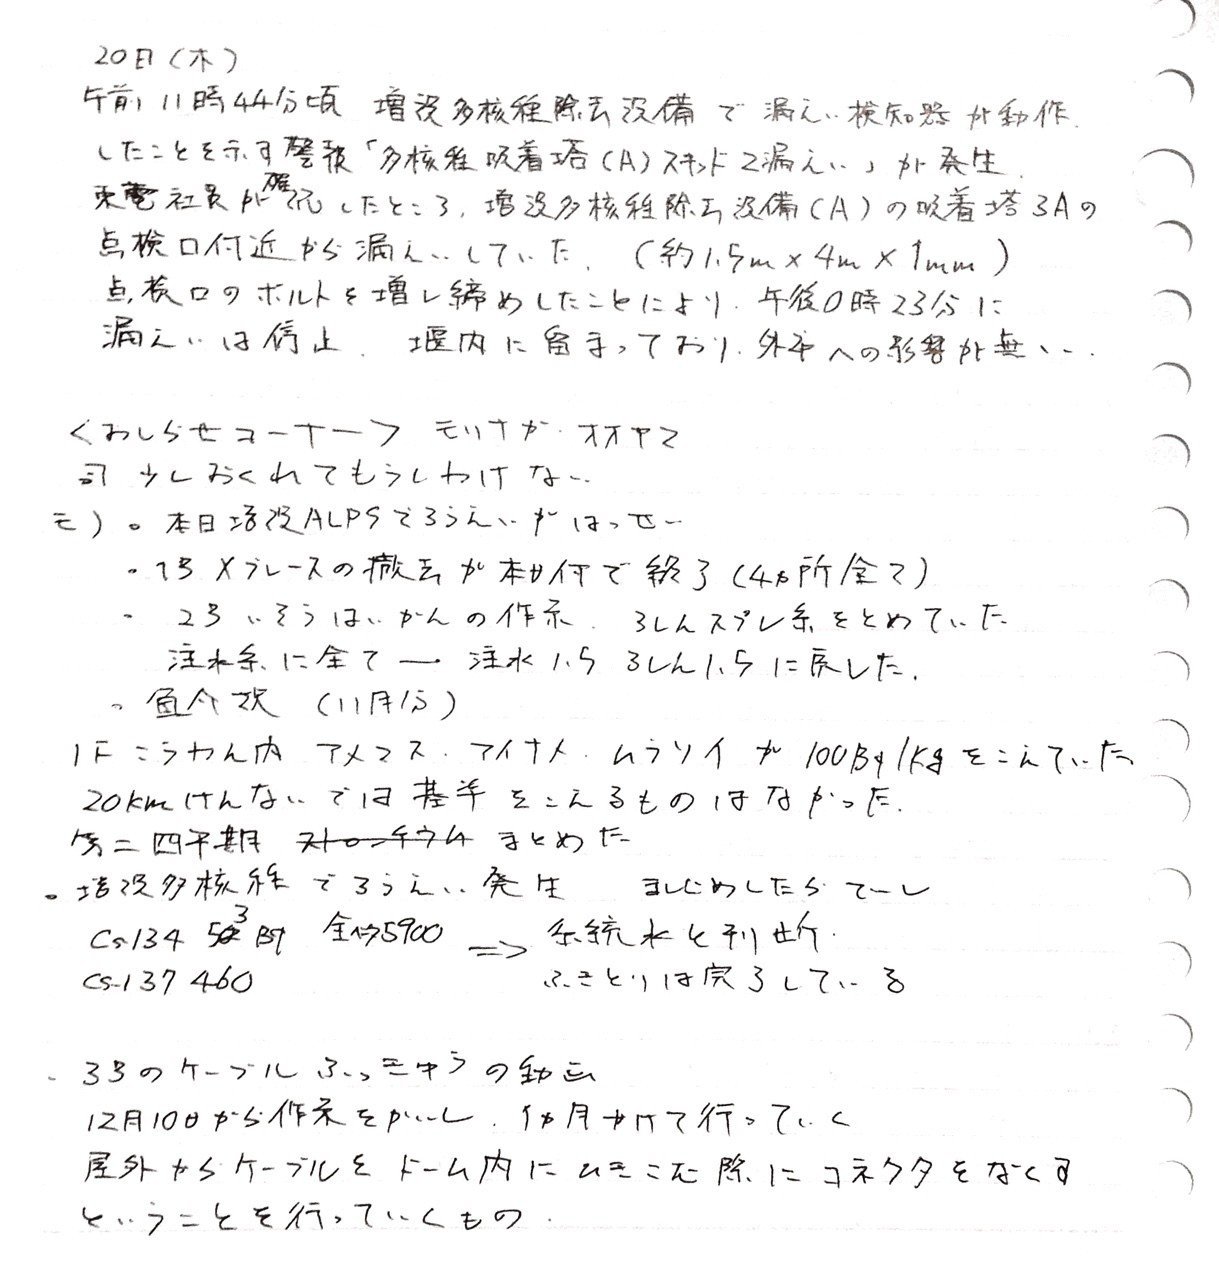 20日(木)
午前11時44分頃 増設多核種除去設備で漏えい検知器が動作.
したことを示す警報「多核種吸着塔(A)スキッド2漏えい」が発生.
東電社員が確認したところ、増設多核種除去設備(A)の吸着塔3Aの
点検口付近から漏えいしていた. (約1.5m×4m×1mm)
点検口のボルトを増し締めしたことにより、午後0時23分に
漏えいは停止. 堰内に留まっており、外部への影響が無い.
<おしらせコーナー> モリナガ・オオヤマ
司 少しおくれてもうしわけない
モ)。本日増設ALPSでろうえいがはっせー
・1号Xブレースの撤去が本日付で終了(4ヵ所全て)
・2号いそうはいかんの作業. ろしんスプレ系をとめていた
注水系に全て → 注水1.5 ろしん1.5に戻した.
・魚介類 (11月分)
1Fこうわん内 アメマス・アイナメ・ムラソイが100Bq/kgをこえていた
20kmけんないでは基準をこえるものはなかった.
第二四半期 まとめた
・増設多核種でろうえい発生 ましじめしたらてーし
Cs-134 53Bq 全β5900 => 系統水と判断.
Cs-137 460 ふきとりは完了している
・3号のケーブルふっきゅうの動画
12月10日から作業をかいし、1ヵ月かけて行っていく
屋外からケーブルをドーム内にひきこむ際にコネクタをなくす
ということを行っていくもの.